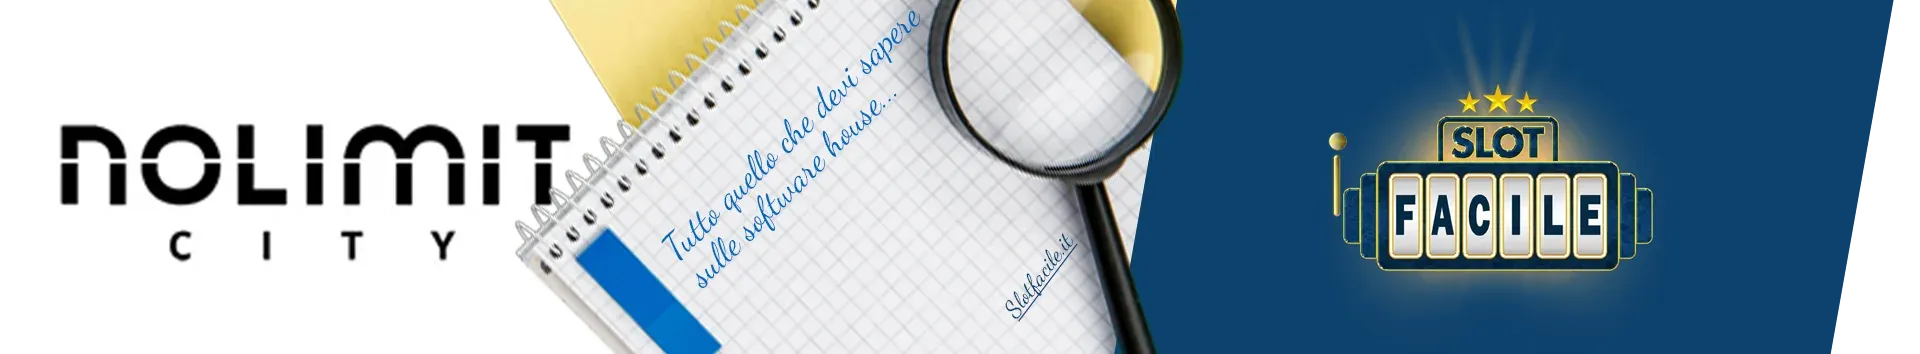 NOLIMIT
CITY
Tutto quello che devi sapere
sulle software house...
Slotfacile.it
SLOT
FACILE